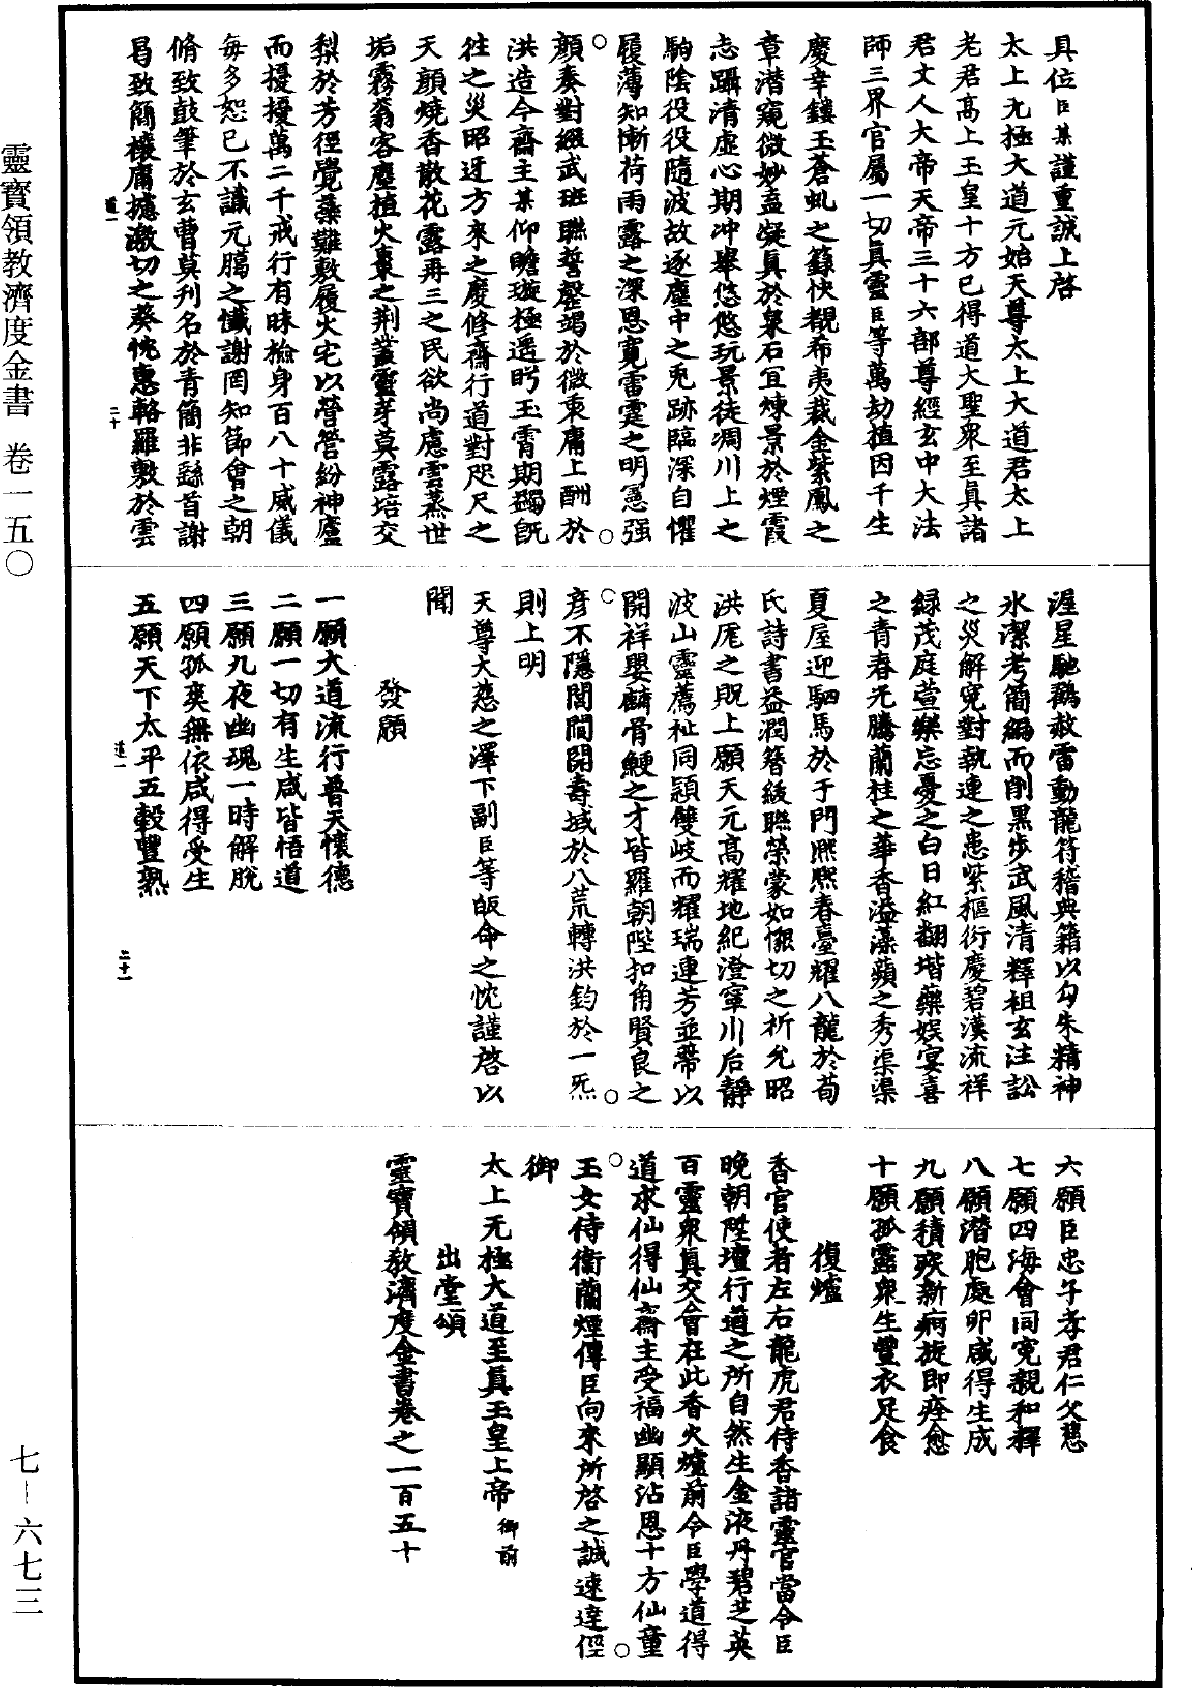 具位臣某謹重誠上啓
太上无極大道元始天尊太上大道君太上
老君高上玉皇十方已得道大聖衆至真諸
君丈人大帝天帝三十六部尊經玄中大法
師三界官屬一切真靈臣等萬劫植因千生
慶幸鏤玉蒼虬之籙快覩希夷裁金紫鳳之
章潛窺微妙盍凝真於泉石宜煉景於煙霞
志躡清虛心期冲舉悠悠玩景徒凋川上之
駒陰役役隨波故逐塵中之兎跡臨深自懼
履薄知慚荷雨露之深恩寬雷霆之明憲强
顏奏對綴武班聯誓罄竭於微衷庸上酬於
洪造今齋主某仰瞻璇極遥盻玉霄期蠲旣
往之災昭迓方來之慶修齋行道對咫尺之
天顏燒香散花露再三之民欲尚慮雲蒸世
垢霧蓊客塵植火棗之荆叢靈芽莫露培交
梨於芳徑覺蘂難敷履火宅以營營紛神廬
而擾擾萬二千戒行有昧撿身百八十威儀
每多恕已不讖元臈之懺謝罔知節會之朝
脩致鼓筆於玄曹莫刋名於青簡非繇首謝
曷致簡禳庸攄激切之葵忱惠輅羅敷於雲
渥星馳鷂赦雷動龍符稽典籍以勾朱精神
氷潔考簡編而削黒步武風清釋祖玄注訟
之災解寃對執連之患紫樞衍慶碧漢流祥
緑茂庭萱樂忘憂之白日紅翻堦藥娱宴喜
之青春光騰蘭桂之華香溢藻蘋之秀渠渠
夏屋迎駟馬於于門熈熈春臺耀八龍於荀
氏詩書益潤簪紱聯榮蒙如懇切之祈允昭
洪厖之貺上願天元高耀地紀澄寧川后靜
波山靈薦祉同頴雙岐而耀瑞連芳並蔕以
開祥嬰麟骨鯁之才皆羅朝陛扣角賢良之
彦不隱閭閻開壽域於八荒轉洪鈞於一炁
則上明
天尊大慈之澤下副臣等皈命之忱謹啓以
聞
發願
一願大道流行普天懷德
二願一切有生咸皆悟道
三願九夜幽魂一時解脫
四願孤爽無依咸得受生
五願天下太平五穀豐熟
六願臣忠子孝君仁父慈
七願四海會同寃親和釋
八願潛胞處卵咸得生成
九願積疾新痾旋即痊愈
十願孤露衆生豐衣足食
復爐
香官使者左右龍虎君侍香諸靈官當令臣
晚朝陞壇行道之所自然生金液丹碧芝英
百靈衆真交會在此香火爐前令臣學道得
道求仙得仙齋主受福幽顯沾恩十方仙童
玉女侍衞蘭煙傳臣向來所啓之誠速達徑
御
太上无極大道至真玉皇上帝御前
出堂頌
靈寶領教濟度金書卷之一百五十
道一
二十
道一
二十一
靈寶領教濟度金書 卷一五〇
七—六七三